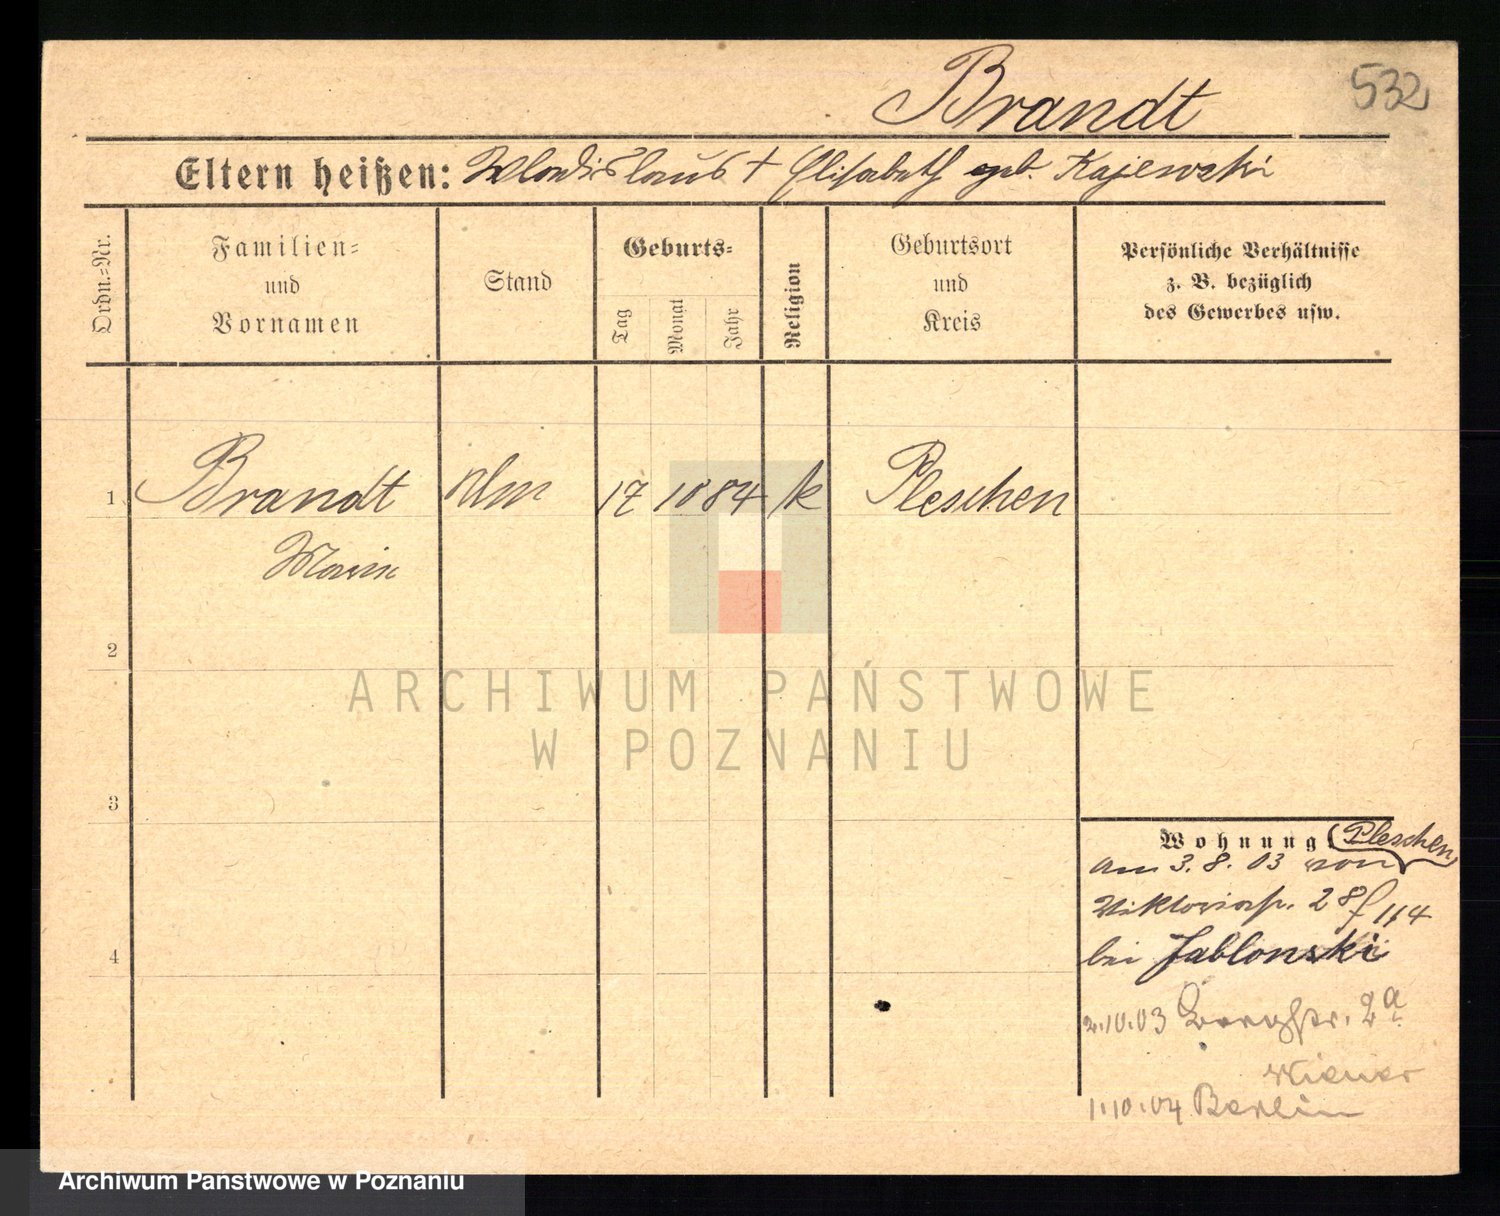 532
Brandt
Eltern heißen: Wladislaus † Elisabeth geb. Kajewski
Ordn.=Nr.
Familien=
und
Vornamen
Stand
Geburts=
Tag
Monat
Jahr
Religion
Geburtsort
und
Kreis
Persönliche Verhältnisse
z. B. bezüglich
des Gewerbes usw.
1 Brandt 17 10 84 k Pleschen
2
3
4
Wohnung (Pleschen)
am 3.8.03 von
Viktoriastr. 28
bei Jablonski
2.10.03 2a
1.10.04 Berlin
ARCHIWUM PAŃSTWOWE
W POZNANIU
Archiwum Państwowe w Poznaniu